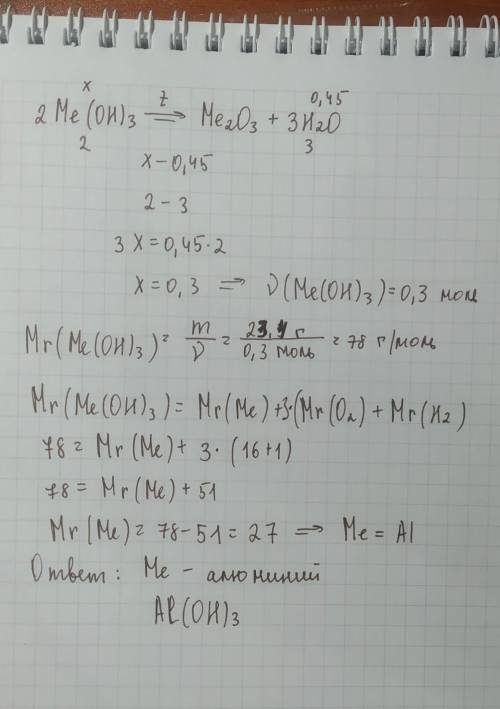 x t 0,45
2 Me(OH)3 ⟹ Me2O3 + 3H2O
2 3
x - 0,45
2 - 3
3 x = 0,45·2
x = 0,3 ⟹ ν(Me(OH)3) = 0,3 моль
Mr(Me(OH)3) = m/ν = 23,4 г/0,3 моль = 78 г/моль
Mr(Me(OH)3) = Mr(Me) + 3·(Mr(O2) + Mr(H2)
78 = Mr(Me) + 3·(16+1)
78 = Mr(Me) + 51
Mr(Me) = 78 - 51 = 27 ⟹ Me = Al
Ответ: Me - алюминий
Al(OH)3